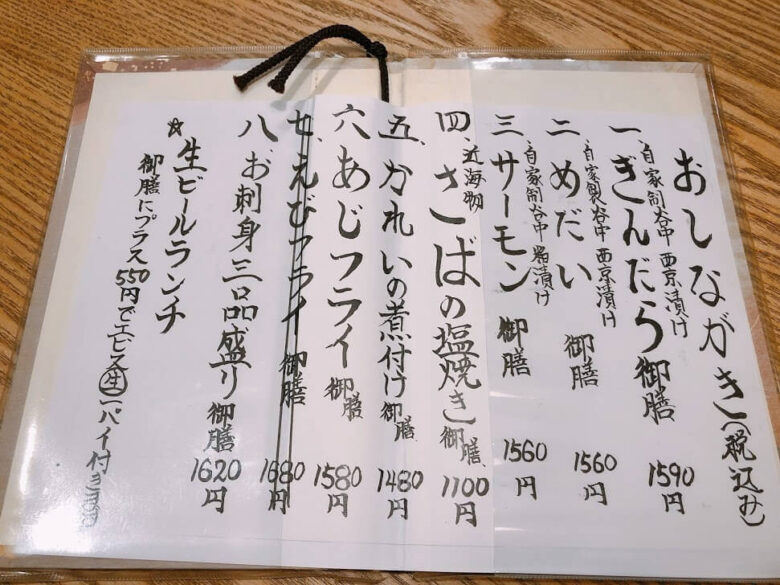 おしながき(税込み)
一、自家製谷中西京漬け
ぎんだら御膳 1590円
二、自家製谷中西京漬け
めだい御膳 1560円
三、自家製谷中粕漬け
サーモン御膳 1560円
四、近海物
さばの塩焼き御膳 1100円
五、かれいの煮付け御膳 1480円
六、あじフライ御膳 1580円
七、えびフライ御膳 1680円
八、お刺身三品盛り御膳 1620円
☆生ビールランチ
御膳にプラス550円でエビス生一パイ付きます